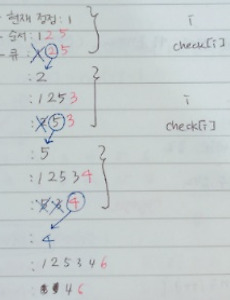 - 현재 정점 : 1
- 순서 : 1 2 5
- 큐 : 1 2 5
i
check[i]
: 2
: 1 2 5 3
: 2 5 3
i
check[i]
: 5
: 1 2 5 3 4
: 4
: 4
: 1 2 5 3 4 6
: 4 6